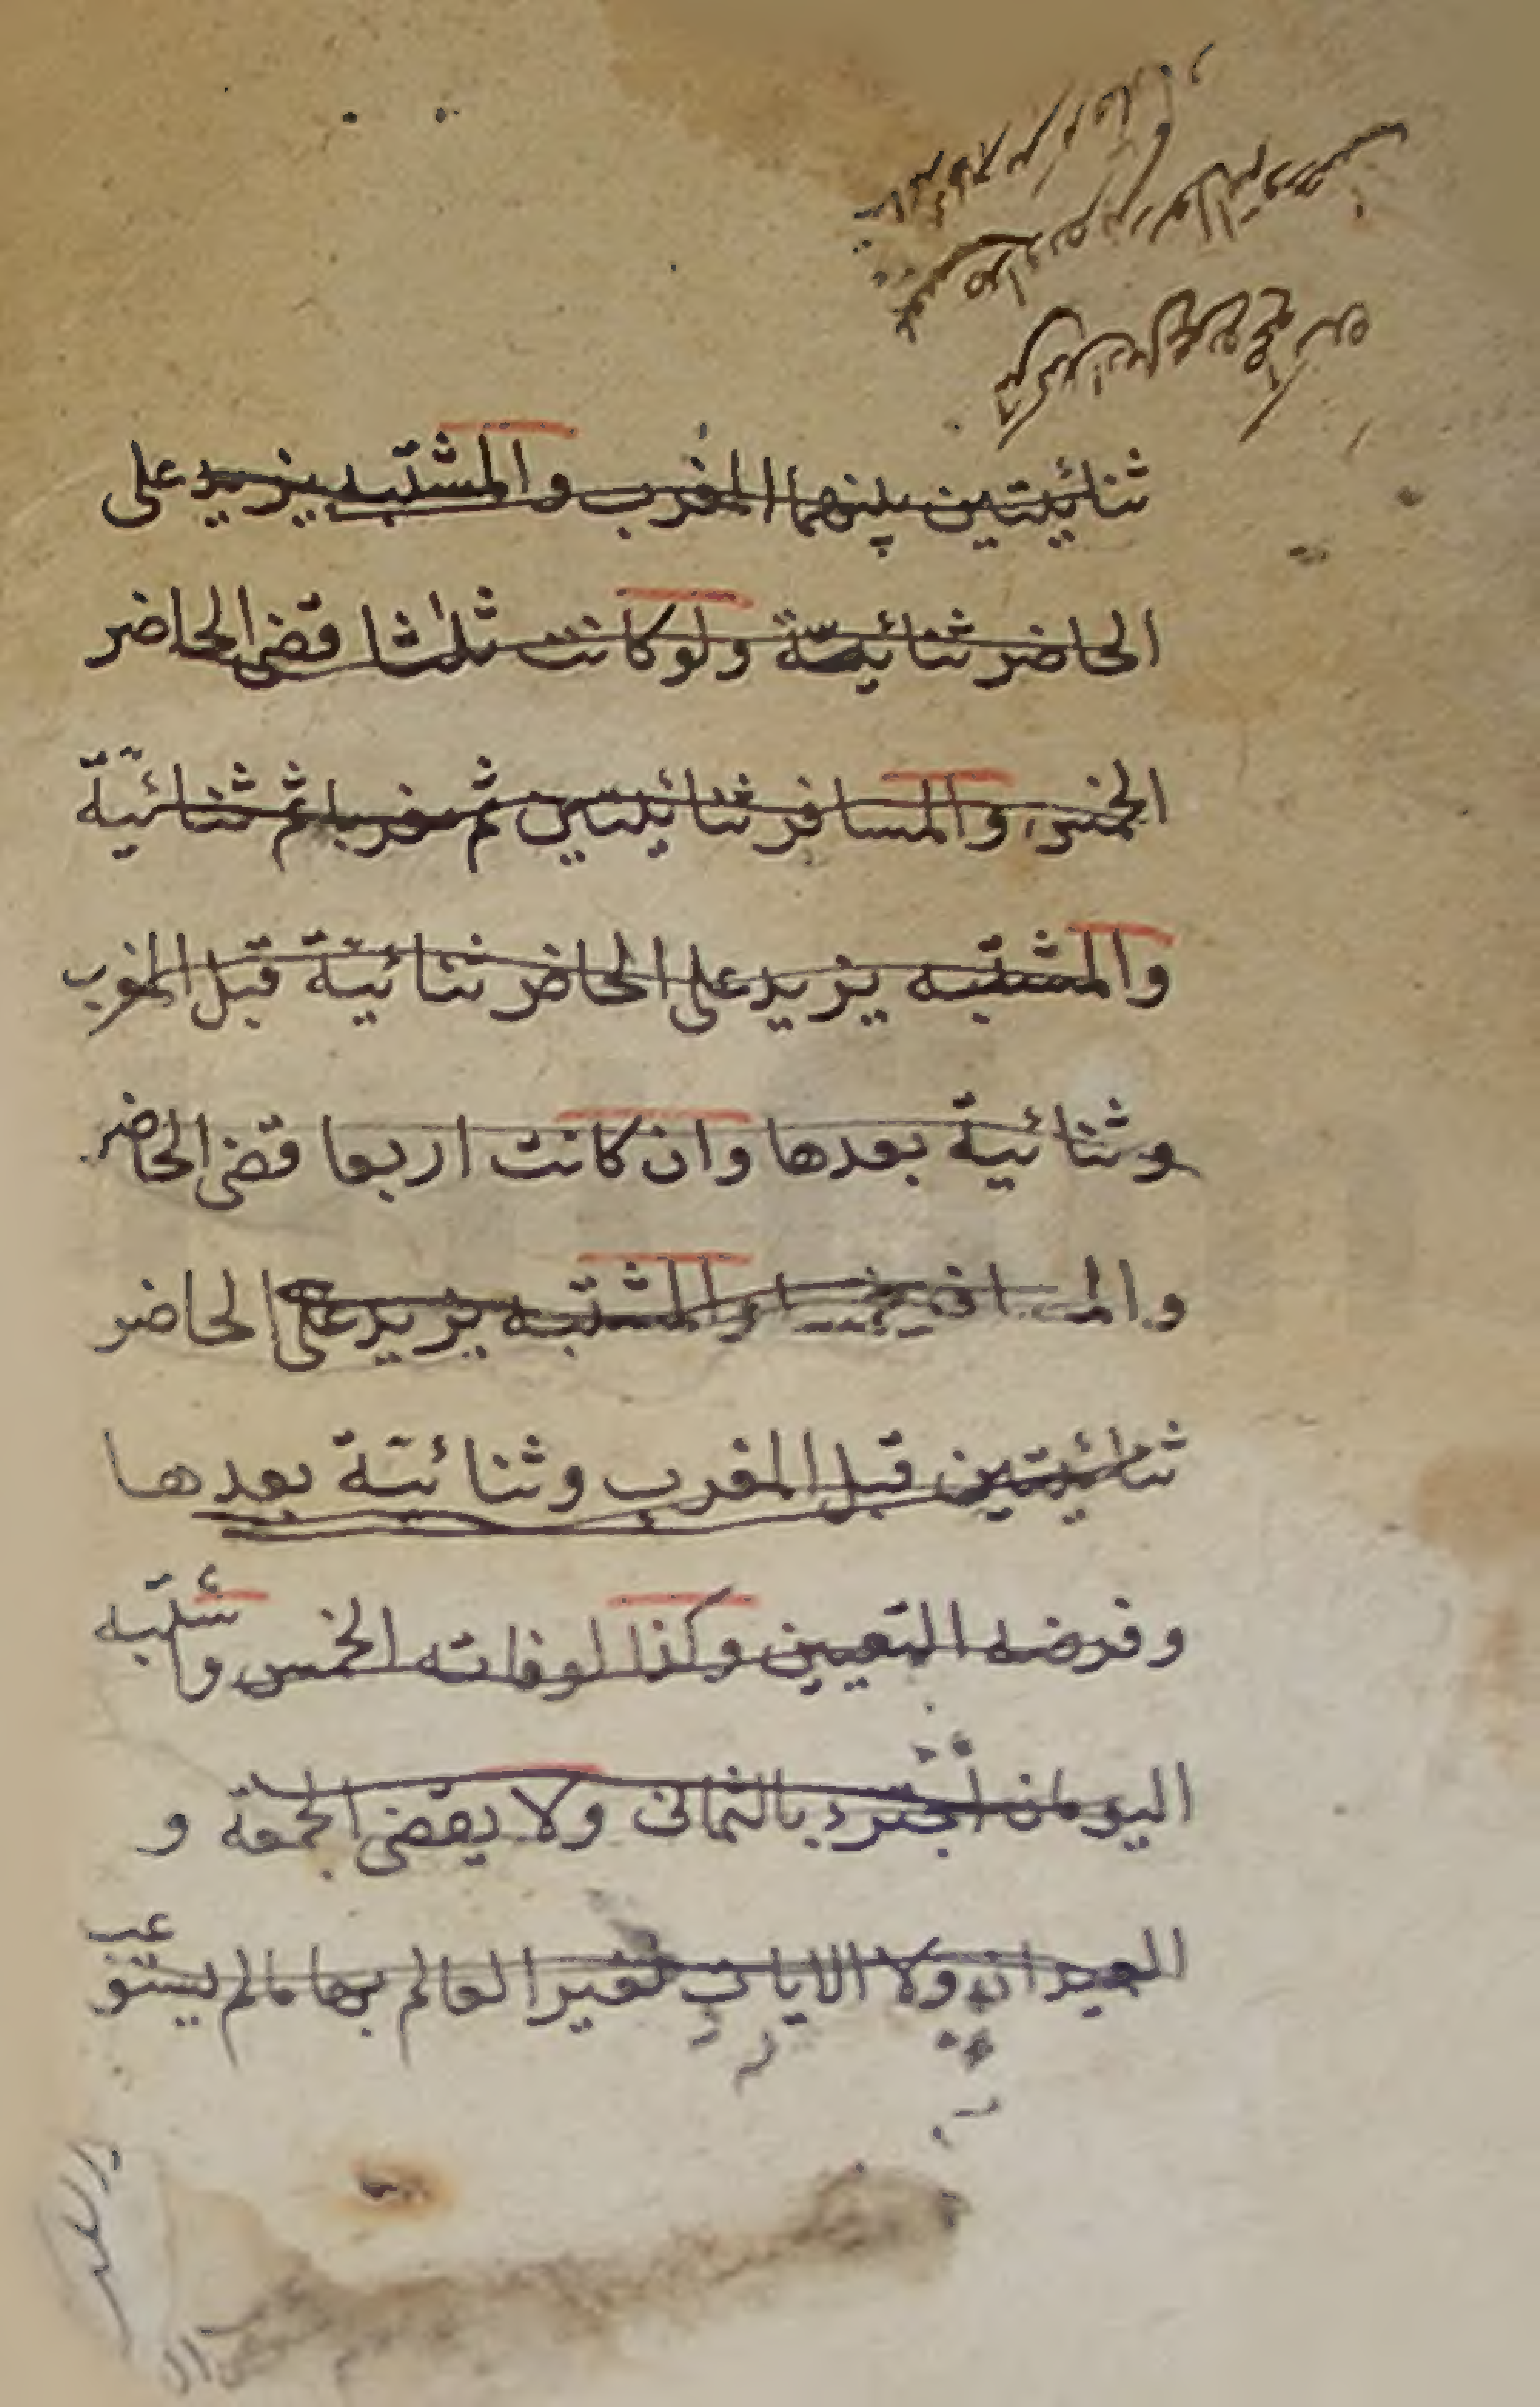 ثنائيتين بينهما المغرب والمشتبه يزيد على
الحاضر ثنائية ولو كانت ثلثا قضى الحاضر
الخمس والمسافر ثنائيتين ثم مغربا ثم ثنائية
والمشتبه يزيد على الحاضر ثنائية قبل المغرب
وثنائية بعدها وان كانت اربعا قضى الحاضر
والمسافر خمسا والمشتبه يزيد على الحاضر
ثنائيتين قبل المغرب وثنائية بعدها
وفرضه التعيين وكذا لو فاته الخمس واشتبه
اليومان اجتزء بالثمانى ولا يقضى الجمعة و
العيدان ولا الايات لغير العالم بها مالم يستوعب